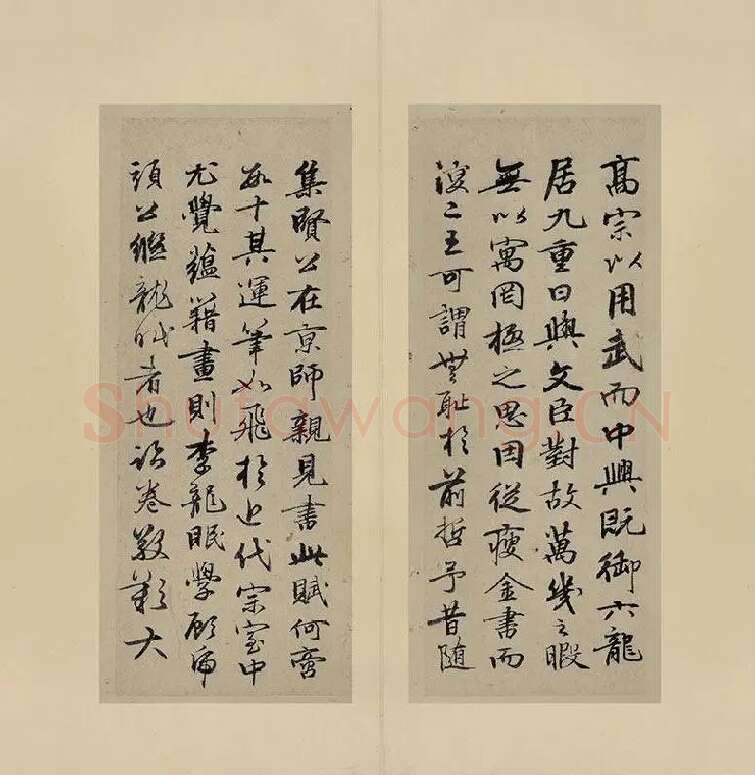 高宗以用武而中興既御六龍
居九重日與文臣對故萬幾之暇
無以寓罔極之思因從瘦金書而
復二王可謂無恥於前哲予昔隨
集賢公在京師親見書此賦何啻
數十其運筆如飛於近代宗室中
尤覺蘊籍畫則李龍眠學顧虎
頭公繼龍眠者也於卷數影大
Shufawang.CN